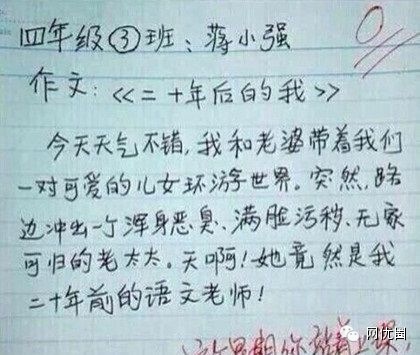 四年级③班：蒋小强
0
作文：<<二十年后的我>>
今天天气不错，我和老婆带着我们
一对可爱的儿女环游世界。突然，路
边冲出一个浑身恶臭、满脸污秽、无家
可归的老太太。天啊！她竟然是我
二十年前的语文老师！
这个星期你站着上课！
网优圈